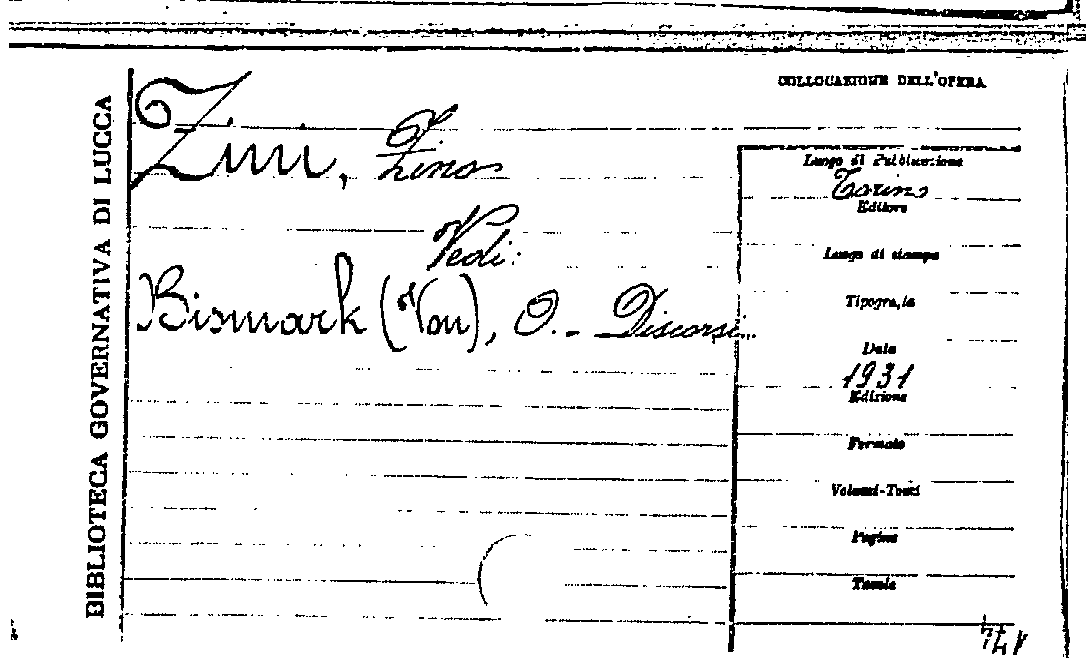 BIBLIOTECA GOVERNATIVA DI LUCCA
COLLOCAZIONE DELL'OPERA
Zini, Zino
Vedi:
Bismark (Von), O. - Discorsi...
Luogo di Pubblicazione
Torino
Editore
Luogo di stampa
Tipografia
Data
1931
Edizione
Formato
Volumi-Tomi
Pagine
Tavole